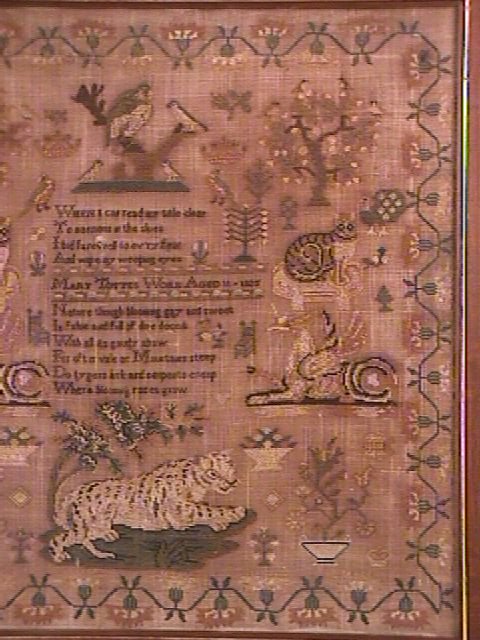 When I can read my title clear
To mansions in the skies
I bid farewell to every fear
And wipe my weeping eyes
Mary Work Aged 
Nature though blooming gay and sweet
Is false and full of dire deceit
With all its gaudy show
For oft a vale or Mountain steep
Do tygers lurk and serpents creep
Where blooming roses grow